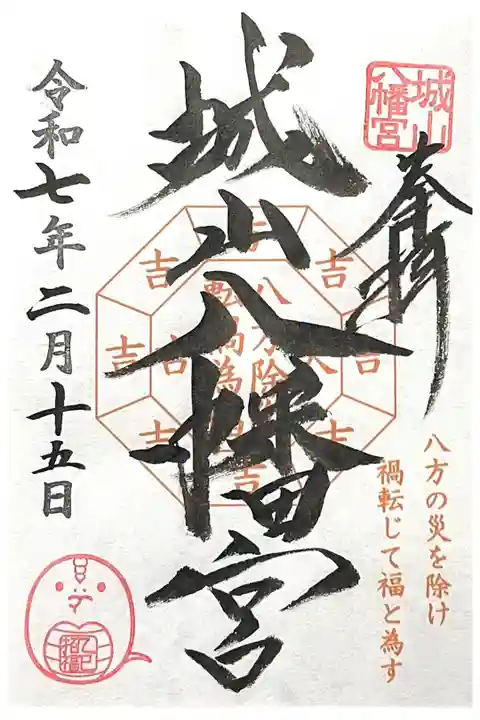 城山
八幡宮
奉拝
城山八幡宮
八方除
転禍為福
吉
吉
吉
吉
吉
吉
吉
吉
八方の災を除け
禍転じて福と為す
令和七年二月十五日
乙巳
招福